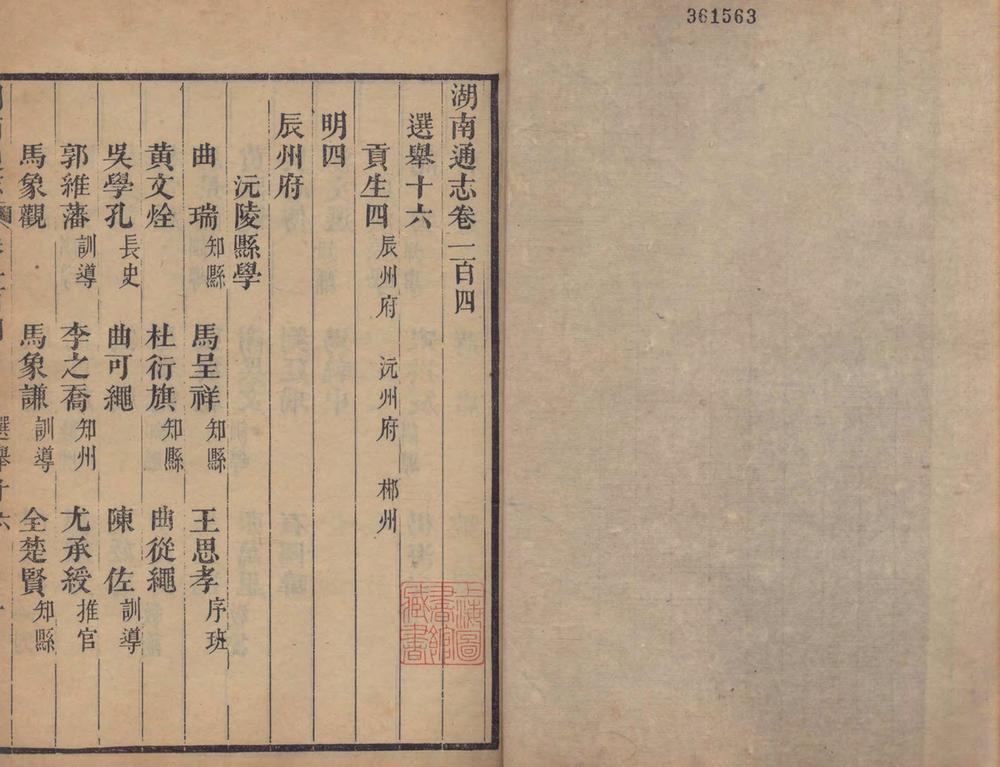 361563
湖南通志卷一百四
選舉十六
貢生四 辰州府 沅州府 郴州
明四
辰州府
沅陵縣學
曲瑞 知縣 馬呈祥 知縣 王思孝 序班
黄文烇 杜衍旗 知縣 曲從繩
吳學孔 長史 曲可繩 陳佐 訓導
郭維藩 訓導 李之喬 知州 尤承綬 推官
馬象觀 馬象謙 訓導 全楚賢 知縣
選舉十六
上海圖書館藏書